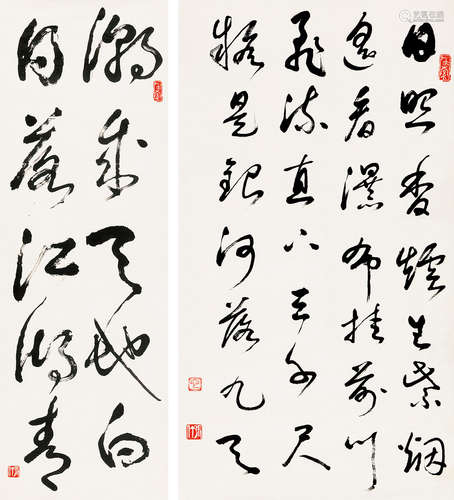 日照香爐生紫烟
遙看瀑布挂前川
飛流直下三千尺
疑是銀河落九天
潮來天地白
日落江湖青